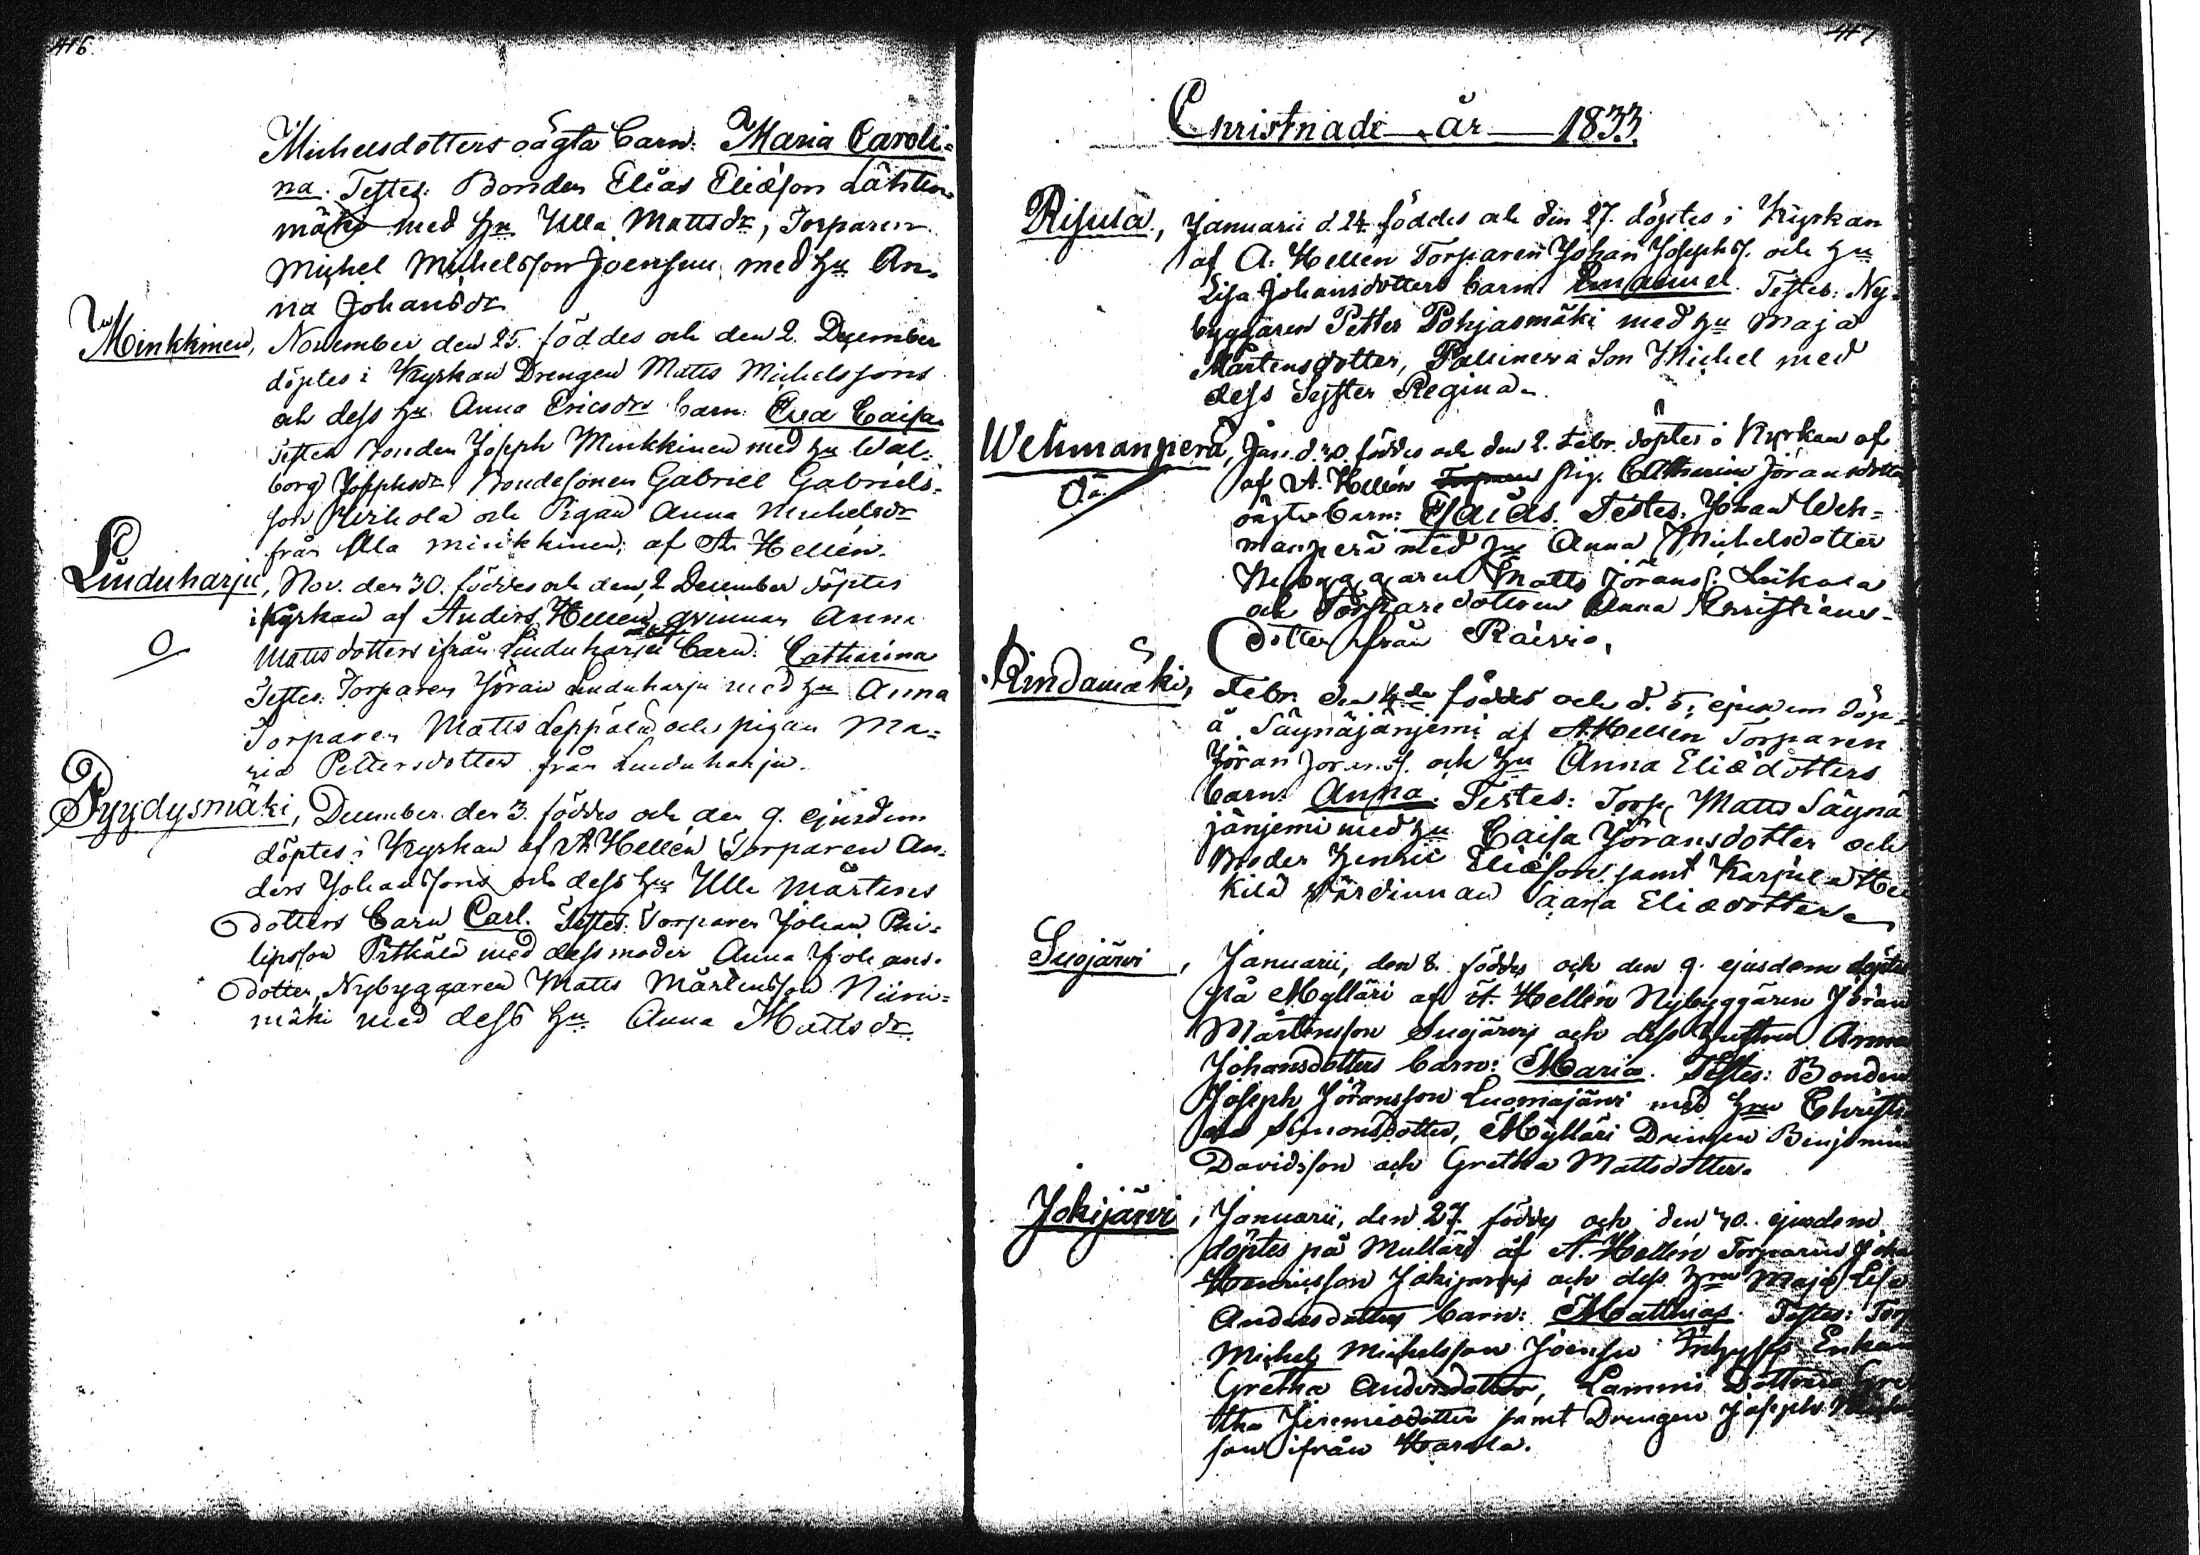 416.
Michelsdotters oägta barn: Maria Caroli=
na. Testes: Bonden Elias Eliæson Lähten
mäki med hu Ulla Mattsdr, Torparen
Michel Michelsson Joensuu med hu An=
na Johansdr
Minkkinen, November den 25. föddes och den 2. December
döptes i Kyrkan Drengen Matts Michelssons
och dess hu Anna Ericsdrs barn Eva Caisa.
Testes Bonden Joseph Minkkinen med hu Wal=
borg Josephsdr Bondesonen Gabriel Gabriels=
son och Pigan Anna Michelsdr
från Ala Minkkinen, af A. Hellén.
Linduharju, Nov. den 30. föddes och den 2 December döptes
i Kyrkan af Anders Hellén qvinnan Anna
Mattsdotters ifrån Linduharju barn: Catharina
Testes: Torparen Jöran Linduharju med hu Anna
Torparen Matts Leppälä och pigan Ma=
ria Pettersdotter från Linduharju.
Pyydysmäki, December den 3. föddes och den 9. ejusdem
döptes i Kyrkan af A. Hellén Torparen An=
ders Johanssons och dess hu Ulla Mårtens
dotters barn Carl. Testes: Torparen Johan Phi=
lipsson Pitkälä med dess moder Anna Johans=
dotter, Nybyggaren Matts Mårtensson Niini=
mäki med dess hu Anna Mattsdr.
417
Christnade år 1833.
Risula, Januarii d. 24 föddes och den 27. döptes i Kyrkan
af A. Hellén Torparen Johan Josephs. och hu
Lisa Johansdotters barn Emanuel. Testes: Ny=
byggaren Petter Pohjasmäki med hu Maja
Mårtensdotter, Son Michel med
dess Syster Regina.
Wehmanperä, Jan. d. 30. föddes och den 2. Febr. döptes i Kyrkan af
Oä. af A. Hellén pig. Catharina Jöransdotters
oägta barn: Esaias. Testes: Johan Weh=
manperä med hu Anna Michelsdotter
Nybyggaren Matts Jörans.
och Torparedottren Anna Christians=
dotter från
Rindamäki, Febr. den 4de föddes och d. 5. ejusdem döp=
å Säynäjärjemi af A. Hellén Torparen
Jöran Jörans. och hu Anna Eliædotters
barn: Anna. Testes: Torp. Matts Säynä
järjemi med hu Caisa Jöransdotter och
Broder Henric Eliæson samt Karjula Hei
kilä Värdinnan Saara Eliædotter
Suojärvi, Januarii, den 8. föddes och den 9. ejusdem döptes
på Mylläri af A. Hellén Nybyggaren Jöran
Mårtensson Suojärvi och dess hustru Anna
Johansdotters barn: Maria. Testes: Bonden
Joseph Jöransson Luomajärvi med hru Christi
na Simonsdotter, Mylläri Drengen Benjamin
Davidsson och Gretha Mattsdotter.
Jokijärvi, Januarii, den 27. föddes och den 30. ejusdem
döptes på Mulläri af A. Hellén Torparen Joha
Henricsson Jokijärvi och dess hru Maja Lisa
Andersdotters barn: Matthias. Testes: Torp
Michel Michelsson Joensuu Enkan
Gretha Andersdotter, Lammi Dottren Gre
tha Jeremiædotter samt Drengen Joseph
son ifrån Harala.